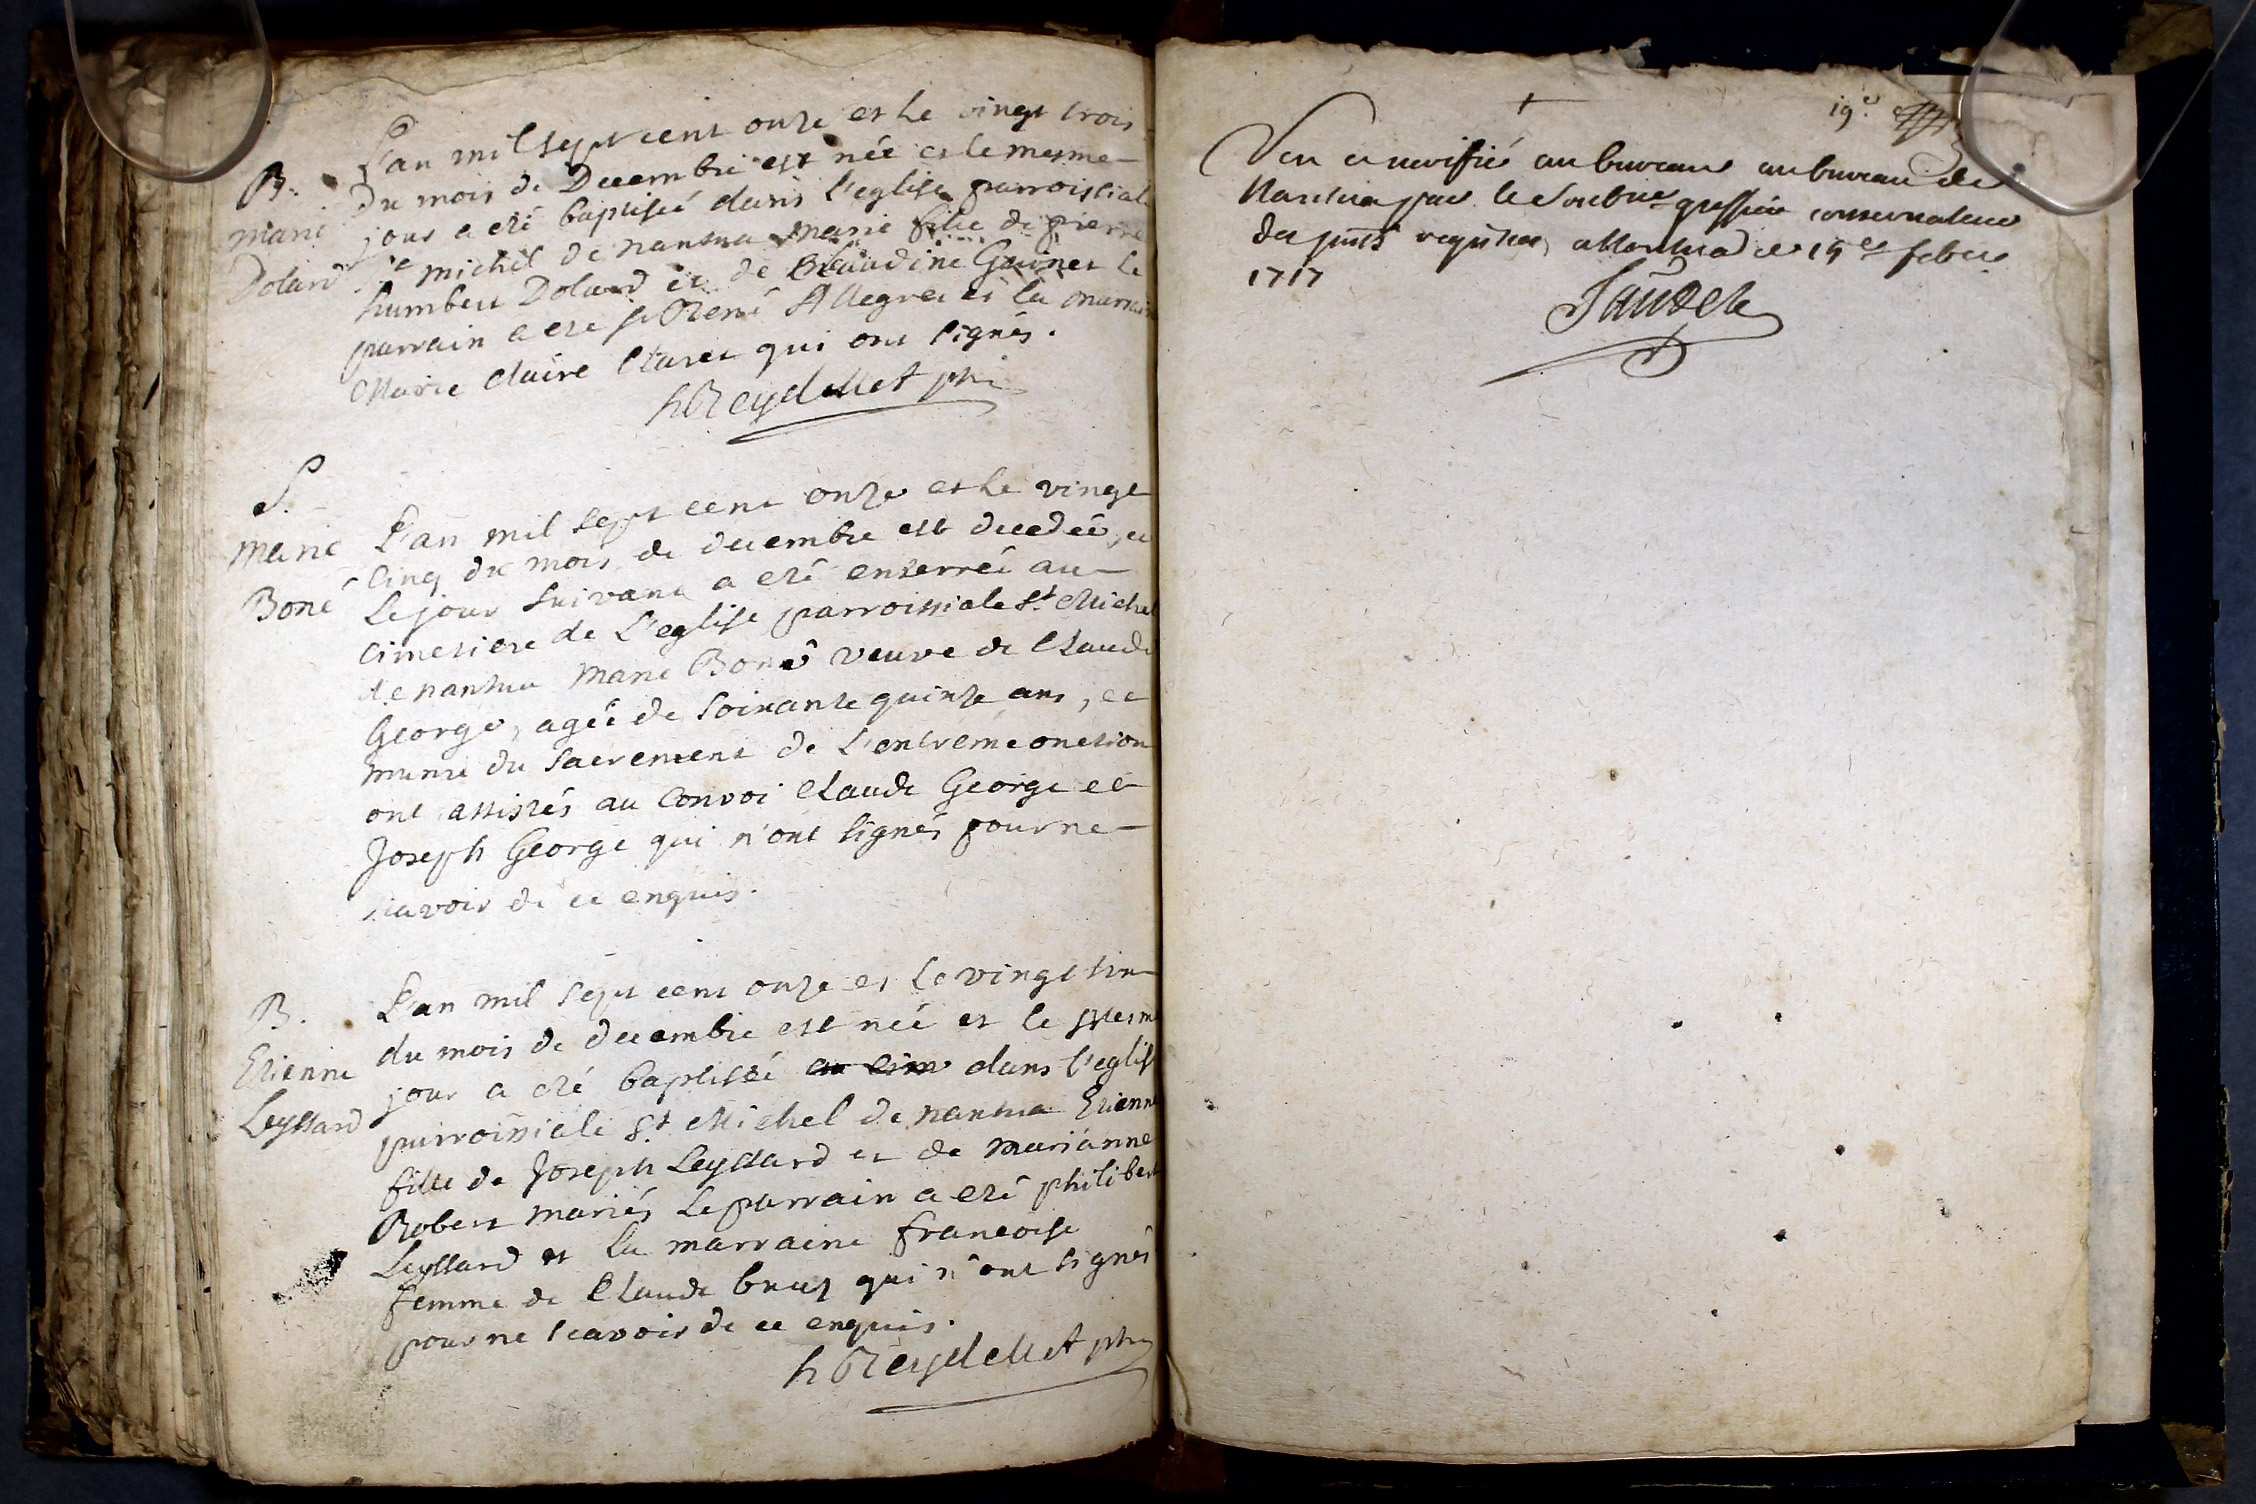 B.
marie
Dolard
L'an mil sept cent onze et le vingt trois
du mois de Decembre est née et le mesme
jour a eté baptisée dans l'eglise parroissiale
st michel de nantua marie fille de pierre
humbert Dolard et de Claudine Guinet le
parrain a eté sr René Allegret et la marraine
Marie claire Claret qui ont signés.
h Reydellet ptre
S.
marie
Boné
L'an mil sept cent onze et le vingt
cinq du mois de decembre est decedée, et
Le jour suivant a eté enterrée au
cimetiere de L'eglise parroissiale st Michel
de nantua marie Boné veuve de Claude
George, agée de soixante quinze ans, et
munie du sacrement de L'extreme onction
ont assistés au convoi Claude George et
Joseph George qui n'ont signés pour ne
scavoir de ce enquis.
B.
Etienne
Leyssard
L'an mil sept cent onze et Le vingt six
du mois de decembre est née et le mesme
jour a eté baptisée dans l'eglise
parroissiale st Michel de nantua Etienne
fille de Joseph Leyssard et de marianne
Robert mariés Le parrain a eté philibert
Leyssard et La marraine francoise
femme de Claude qui n'ont signés
pour ne scavoir de ce enquis.
h Reydellet ptre
19e
Veu et verifié au bureaux au bureau de
Nantua par le Soubne greffier conservateur
des pnts registres a Nantua ce 19e febvr
1717